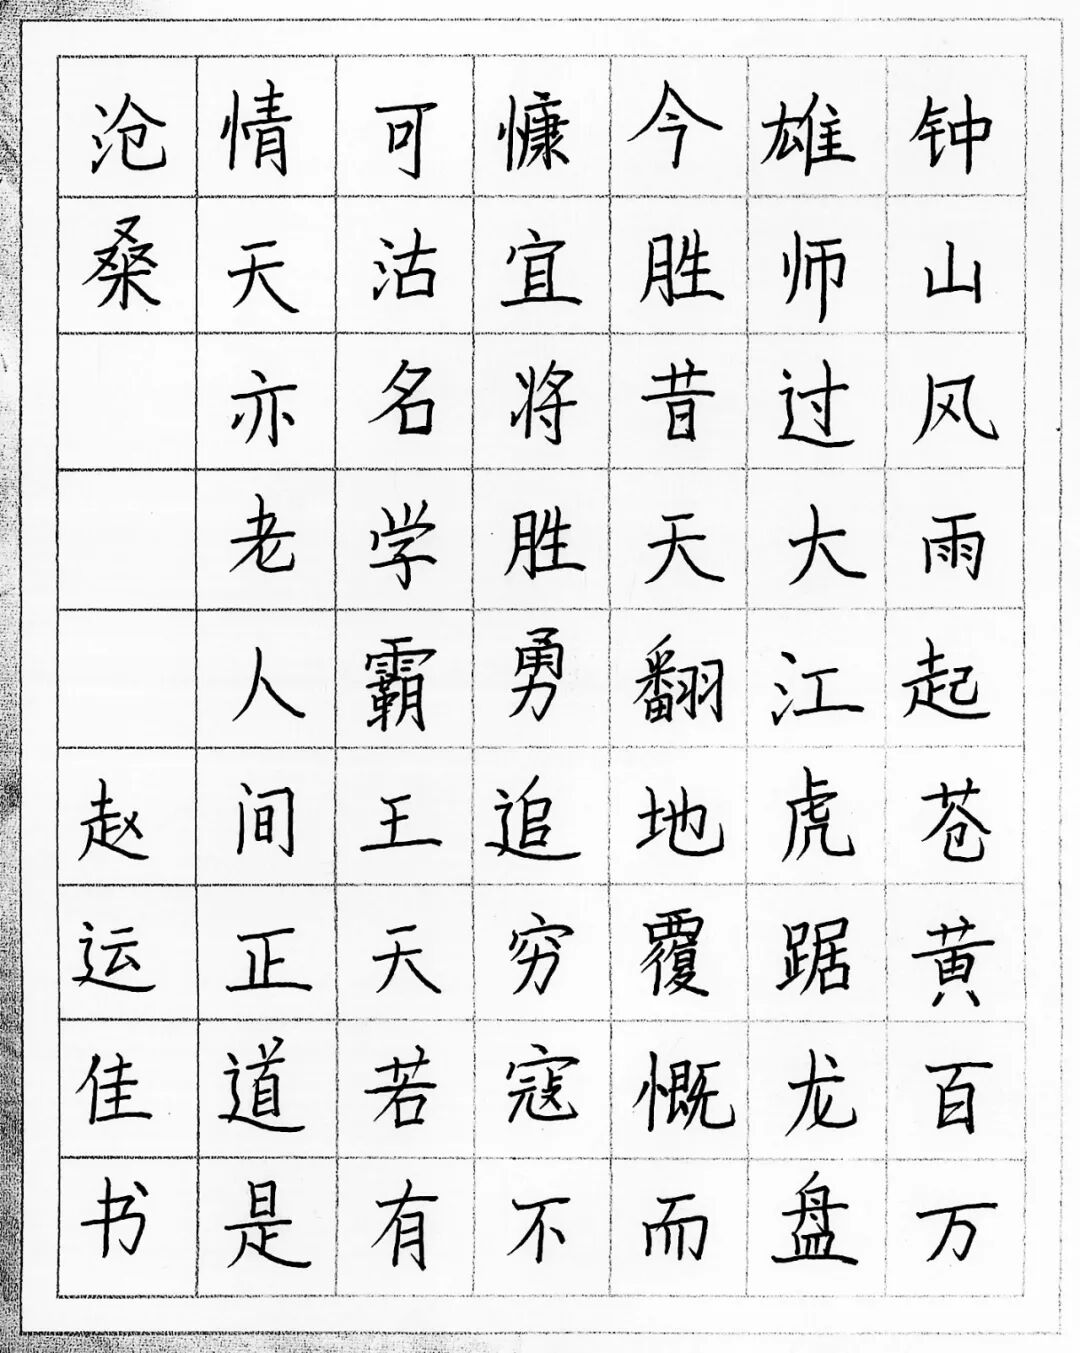 钟山风雨起苍黄百万
雄师过大江虎踞龙盘
今胜昔天翻地覆慨而
慷宜将胜勇追穷寇不
可沽名学霸王天若有
情天亦老人间正道是
沧桑 赵运佳书